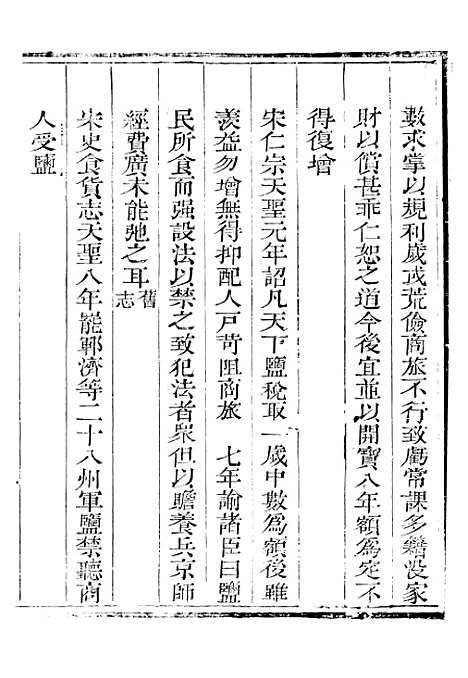 數求掌以規利歲或荒儉商旅不行致虧常課多籍沒家
財以償甚乖仁恕之道今後宜並以開寶八年額為定不
得復增
宋仁宗天聖元年詔凡天下鹽稅取一歲中數為額後雖
羨益勿增無得抑配人戸苛阻商旅　七年諭諸臣曰鹽
民所食而强設法以禁之致犯法者衆但以贍養兵京師
經費廣未能弛之耳舊志
宋史食貨志天聖八年罷鄆濟等二十八州軍鹽禁聽商
人受鹽